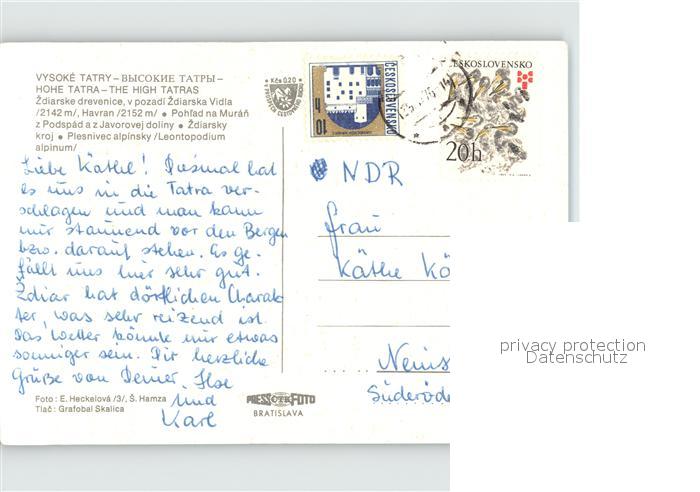 VYSOKÉ TATRY – ВЫСОКИЕ ТАТРЫ –
HOHE TATRA – THE HIGH TATRAS
Ždiarske drevenice, v pozadí Ždiarska Vidla
/2142 m/, Havran /2152 m/ • Pohľad na Muráň
z Podspád a z Javorovej doliny • Ždiarsky
kroj • Plesnivec alpínsky /Leontopodium
alpinum/
Kčs 0,20
Liebe Käthe! Diesmal hat
es uns in die Tatra ver-
schlagen und man kann
nur staunend vor den Bergen
bzw. darauf stehen. Es ge-
fällt uns hier sehr gut.
Ždiar hat dörflichen Charak
ter, was sehr reizend ist.
Das Wetter könnte nur etwas
sonniger sein. Dir herzliche
Grüße von Ilse
und
Karl
Foto: E. Heckelová /3/, Š. Hamza
Tlač: Grafobal Skalica
PRESSFOTO
BRATISLAVA
ČESKOSLOVENSKO
10 h
ČESKOSLOVENSKO
20h
NDR
Frau
Käthe Kö
Neins
Süderöde
privacy protection
Datenschutz